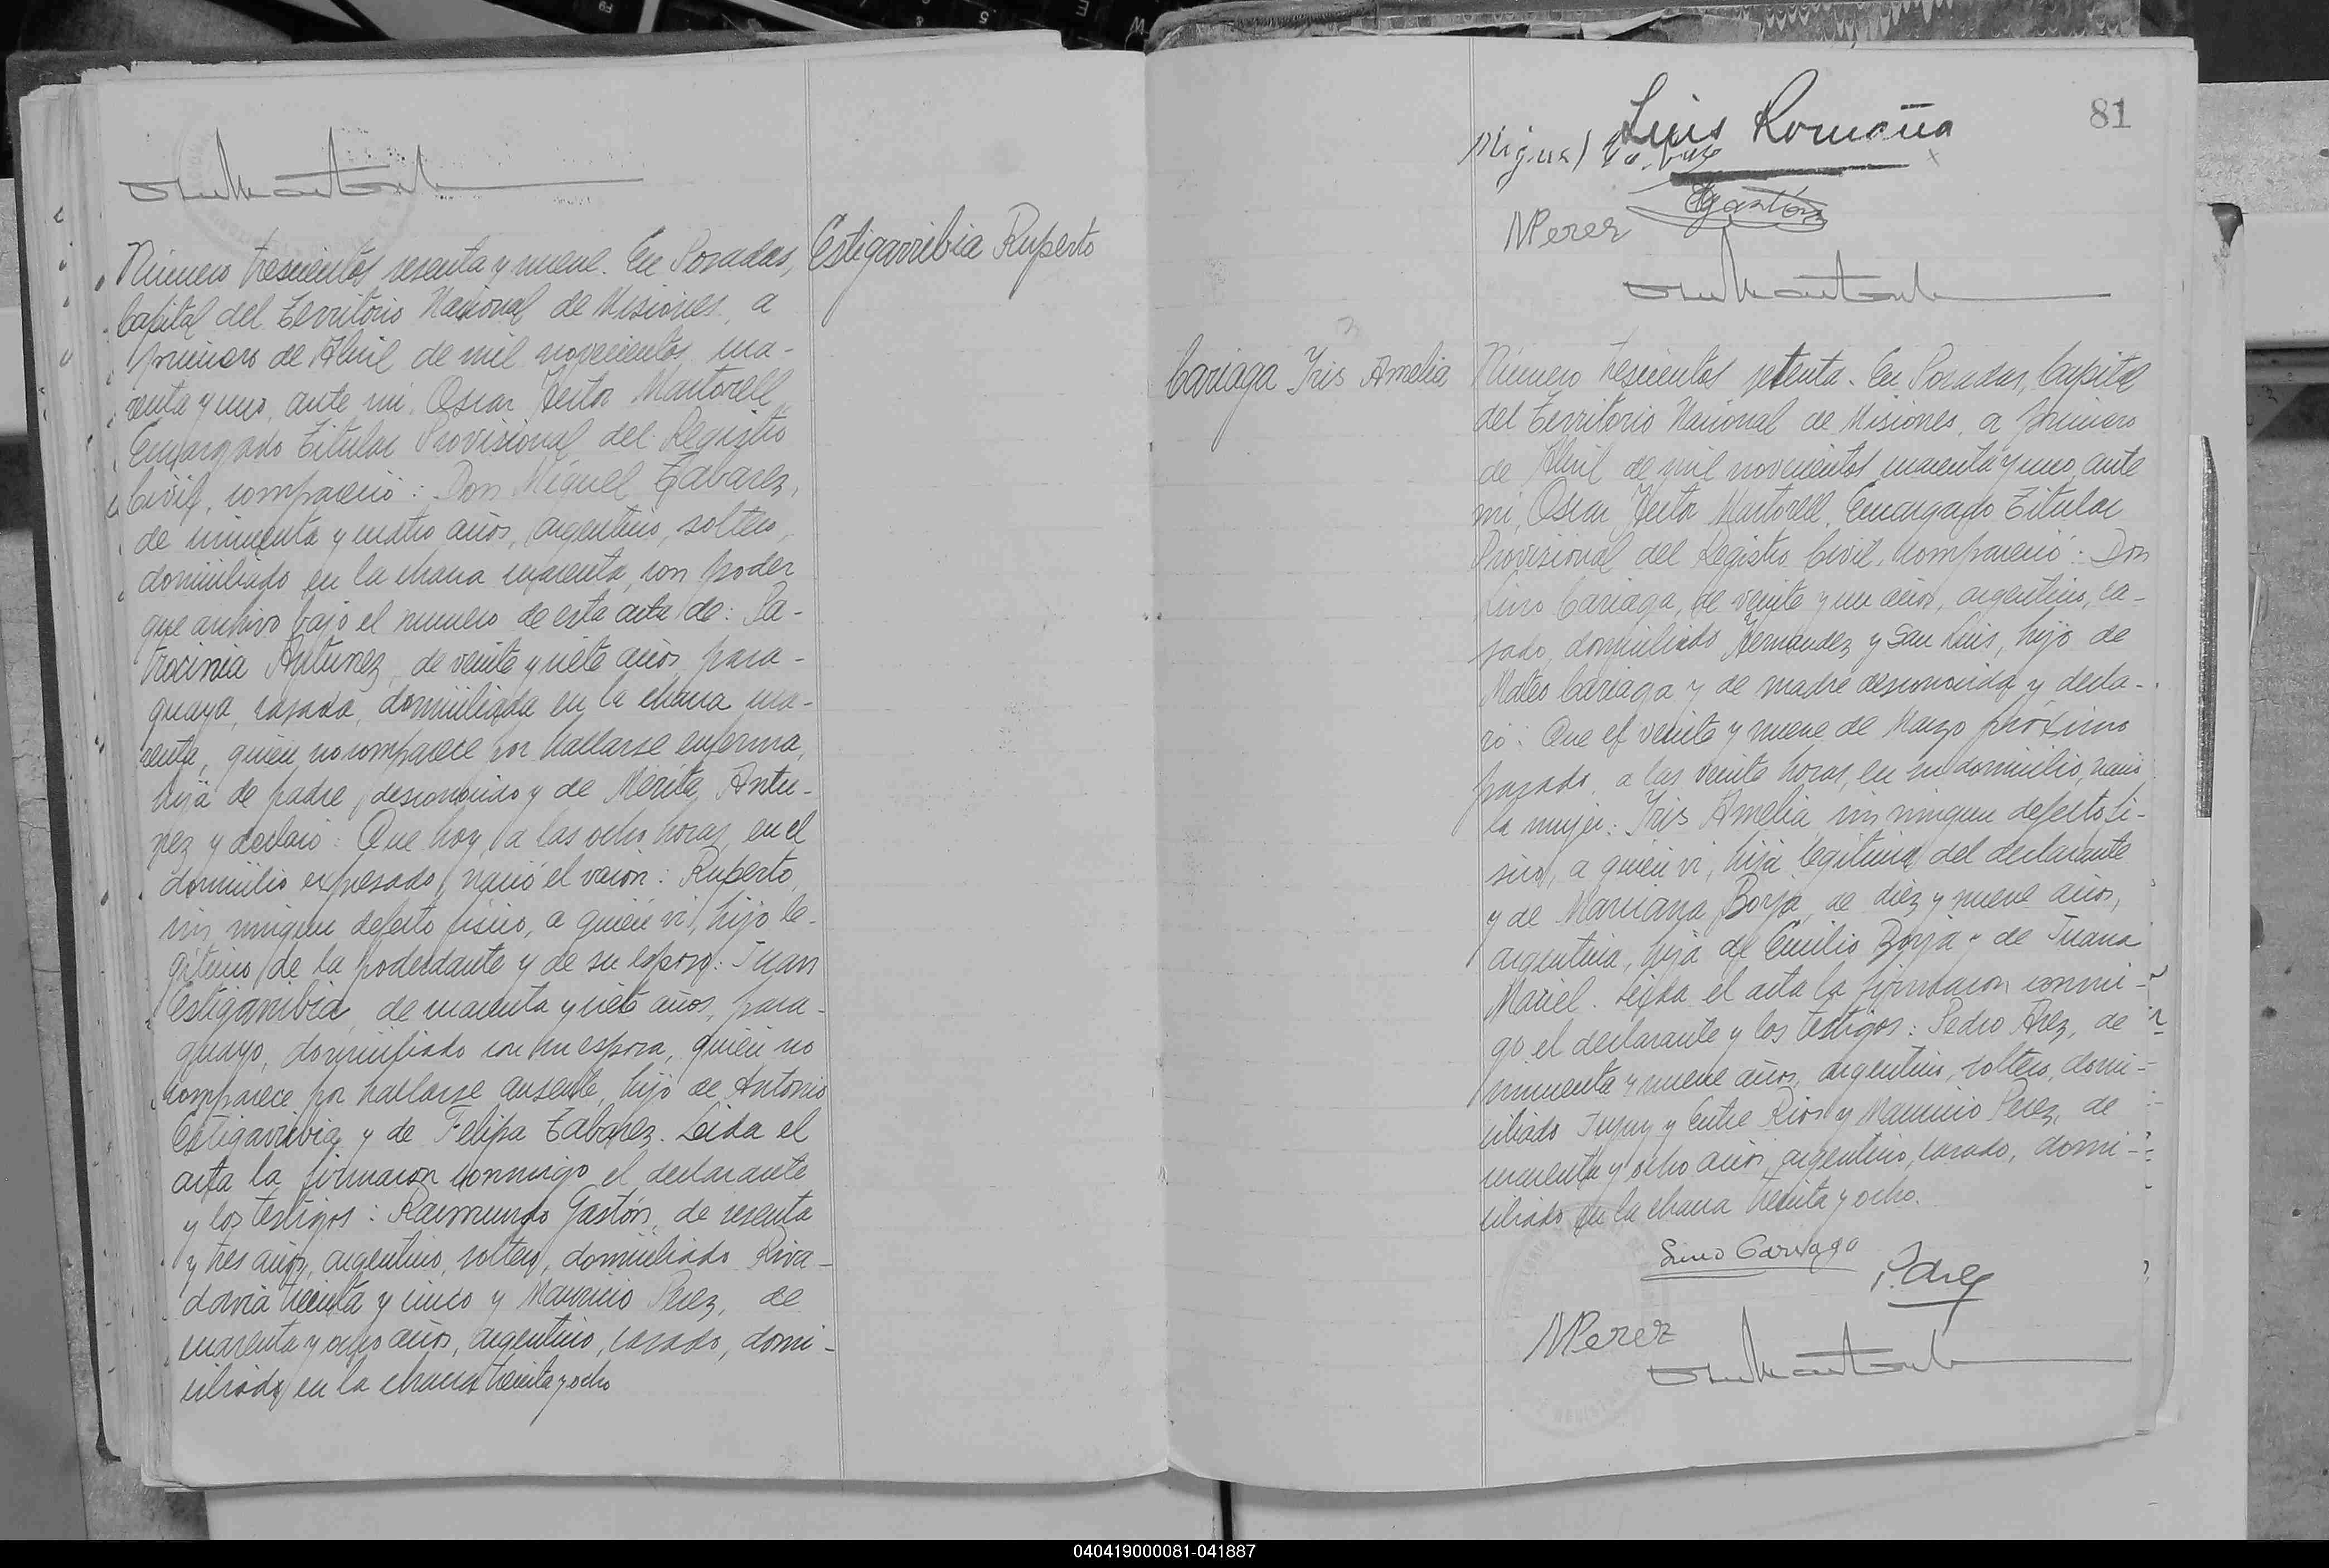 Estigarribia Ruperto
Número trescientos sesenta y nueve. En Posadas,
Capital del Territorio Nacional de Misiones, a
primero de Abril de mil novecientos cua-
renta y uno, ante mi, Oscar Hector Martorell,
Encargado Titular Provisional del Registro
Civil, compareció: Don Miguel Tabarez,
de cincuenta y cuatro años, argentino, soltero,
domiciliado en la chacra cuarenta, con poder
que archivo bajo el numero de esta acta de: Pa-
trocinia Antunez, de veinte y siete años, para-
guaya, casada, domiciliada en la chacra cua-
renta, quién no comparece por hallarse enferma,
hija de padre desconocido y de Mérita Antu-
nez y declaró: Que hoy, a las ocho horas, en el
domicilio expresado, nació el varón: Ruperto,
sin ningun defecto fisico, a quién vi, hijo le-
gitimo de la poderdante y de su esposo: Juan
Estigarribia, de cuarenta y siete años, para-
guayo, domiciliado con su esposa, quién no
comparece por hallarse ausente, hijo de Antonio
Estigarribia y de Felipa Tabarez. Leida el
acta la firmaron conmigo el declarante
y los testigos: Raimundo Gastón, de sesenta
y tres años, argentino, soltero, domiciliado Riva-
davia treinta y cinco y Mauricio Perez, de
cuarenta y ocho años, argentino, casado, domi-
ciliado en la chacra treinta y ocho
81
Luis Romaña
Miguel
Gastón
MPerez
Cariaga Iris Amelia
Número trescientos setenta. En Posadas, Capital
del Territorio Nacional de Misiones, a primero
de Abril de mil novecientos cuarenta y uno, ante
mi, Oscar Hector Martorell, Encargado Titular
Provisional del Registro Civil, compareció: Don
Lino Cariaga, de veinte y un años, argentino, ca-
sado, domiciliado Hernandez y San Luis, hijo de
Mateo Cariaga y de madre desconocida y decla-
ró: Que el veinte y nueve de Marzo próximo
pasado, a las veinte horas, en su domicilio, nació
la mujer: Iris Amelia, sin ningun defecto fi-
sico, a quién vi, hija legitima del declarante
y de Mariana Borja, de diez y nueve años,
argentina, hija de Emilio Borja y de Juana
Maciel. Leida el acta la firmaron conmi-
go el declarante y los testigos: Pedro Arez, de
cincuenta y nueve años, argentino, soltero, domi-
ciliado Jujuy y Entre Rios y Mauricio Perez, de
cuarenta y ocho años, argentino, casado, domi-
ciliado en la chacra treinta y ocho.
Lino Cariaga
P. Arez
MPerez
040419000081-041887